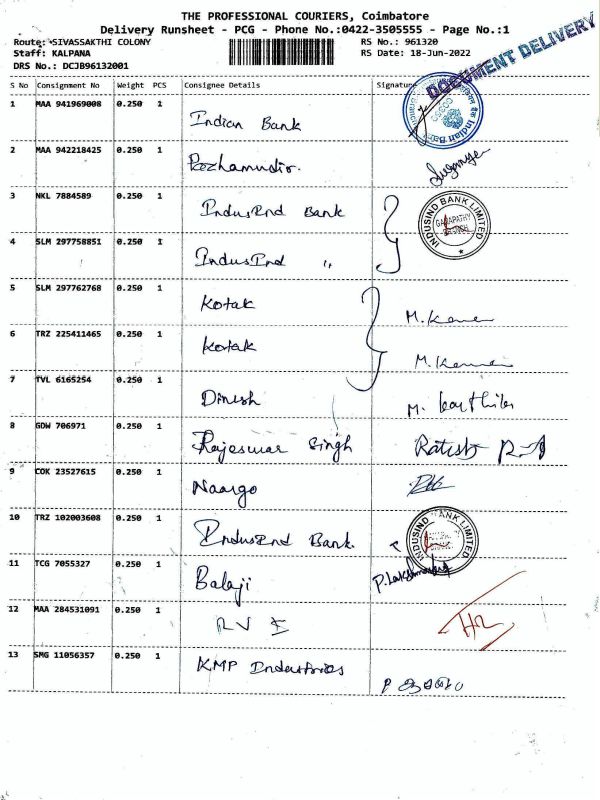 THE PROFESSIONAL COURIERS, Coimbatore
Delivery Runsheet - PCG - Phone No.:0422-3505555 - Page No.:1
Route: SIVASSAKTHI COLONY
RS No.: 961320
Staff: KALPANA
RS Date: 18-Jun-2022
DRS No.: DCJB96132001
DOCUMENT DELIVERY
S No Consignment No Weight PCS Consignee Details Signature
1 MAA 941969008 0.250 1 Indian Bank
2 MAA 942218425 0.250 1 Pazhamudir.
3 NKL 7884589 0.250 1 IndusInd Bank
INDUSIND BANK LIMITED
GANAPATHY
BRANCH
4 SLM 297758851 0.250 1 IndusInd "
5 SLM 297762768 0.250 1 Kotak
6 TRZ 225411465 0.250 1 Kotak
7 TVL 6165254 0.250 1 Dinesh M. Karthik
8 GDW 706971 0.250 1 Rajeswar Singh
9 COK 23527615 0.250 1 Naargo
10 TRZ 102003608 0.250 1 IndusInd Bank.
INDUSIND BANK LIMITED
11 TCG 7055327 0.250 1 Balaji
12 MAA 284531091 0.250 1
13 SMG 11056357 0.250 1 KMP Industries